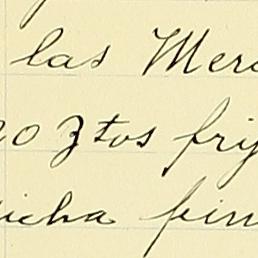 las Merc
20 Ztos frij
icha fin